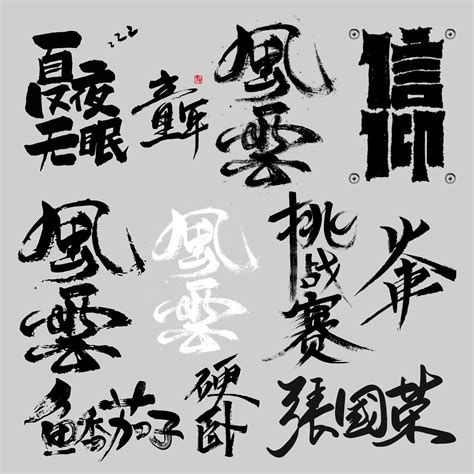 zzz
夏夜
无眠
童年
風雲
信仰
風雲
風雲
挑战赛
火車
鱼香茄子
硬卧
張國荣